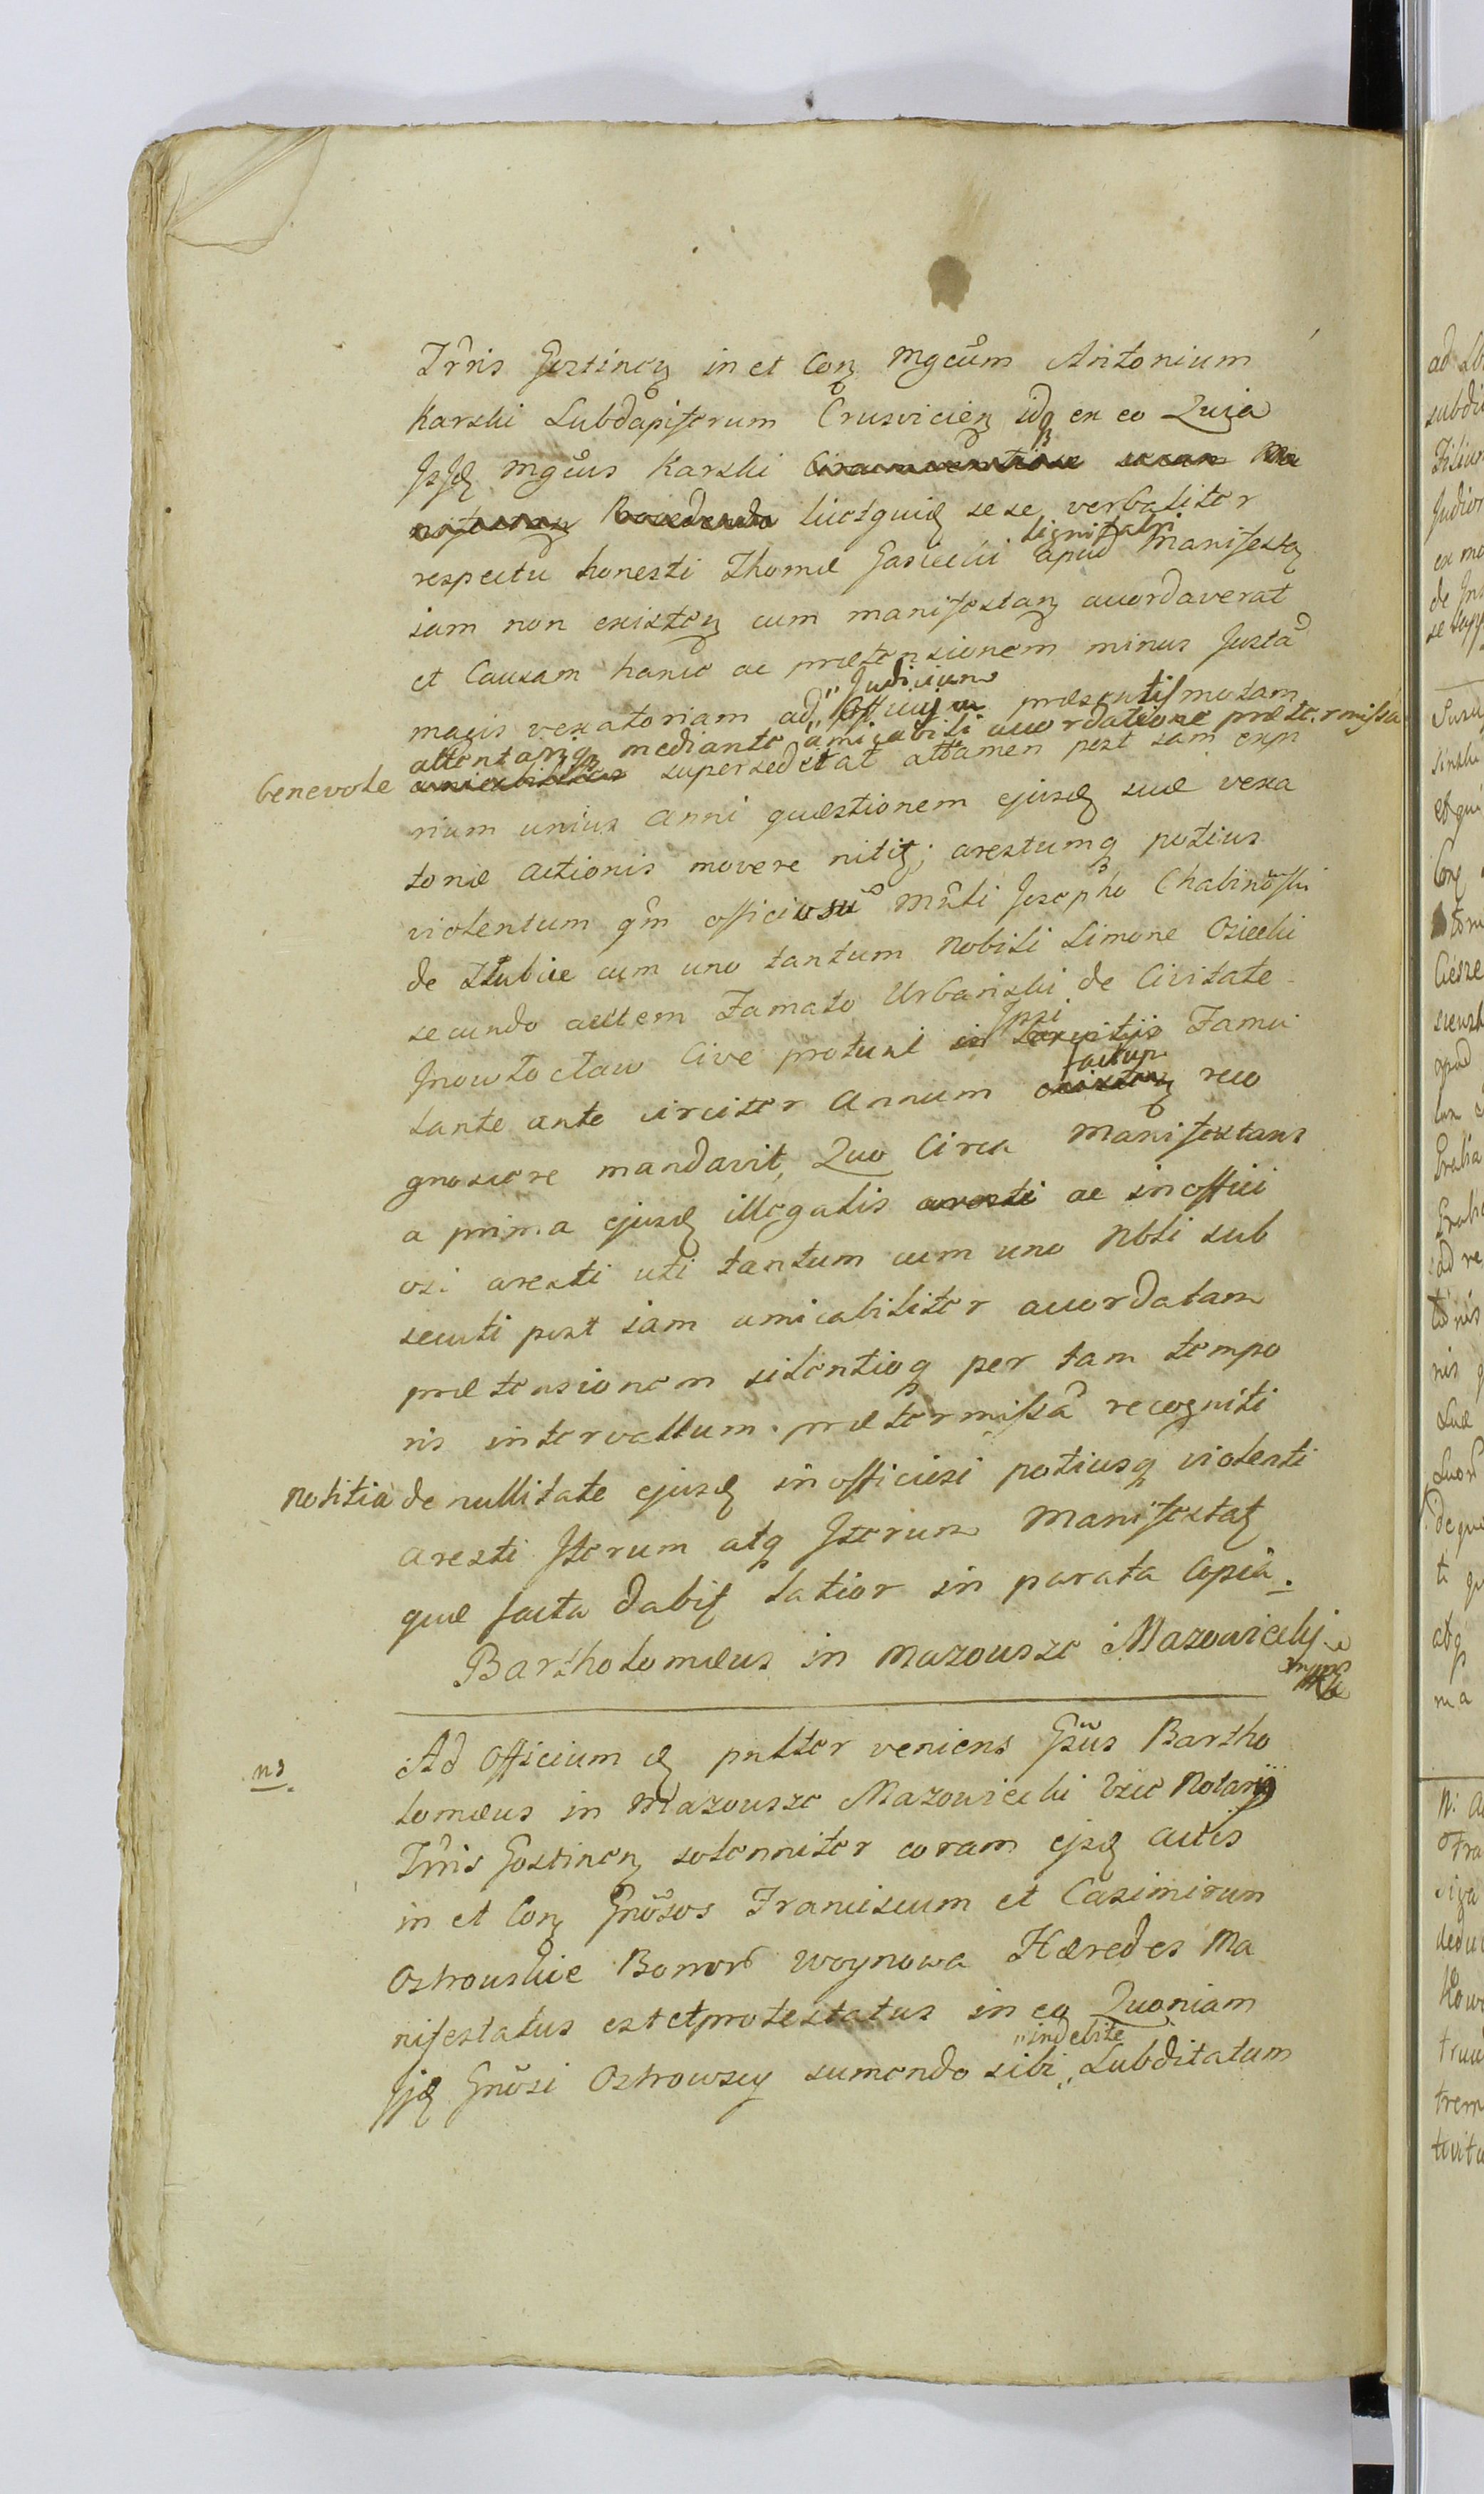 Trris Gostinen in et Con Mgcum Antonium
Karski Subdapiferum Crusvicien idq ex eo Quia
Ipse Mgcus Karski
licetquid sese verbaliter
respectu honesti Thomæ Gasiecki apud dignitatri Manifestan
iam non existen cum manifestan accordaverat
et Causam hanc ac prætensionem minus Justa
magis vexatoriam ad Officium Judicium præsentis motam
attentamq mediante amicabili accordatione prætermissa
benevole amicabiliter supersedebat attamen post iam expi
rium unius anni quæstionem ejusd suæ vexa
toriæ actionis movere nitit; arestumq potius
violentum qm officiosu Mrli Josepho Chabinoski
de Stubice cum uno tantum Nobili Simone Osiecki
secundo autem Famato Urbanski de Civitate
Inowtoctaw Cive protunc in Servitijs Ipsi Famu
lante ante circiter annum existen factum reco
gnoscere mandavit, Quo Circa Manifestans
a prima ejusd illegalis aresti ac inoffici
osi aresti uti tantum cum uno Nbli sub
secuti post iam amicabiliter accordatam
prætensionem silentioq per tam tempo
ris intervallum prætermissa recogniti
notitia de nullitate ejusd inofficiosi potiusq violenti
aresti Iterum atq Iterum Manifestat
quæ facta dabit latior in parata Copia.
Bartholomæus in Mazowsze Mazowiecki
n3. Ad Officium &c pnltter veniens Gsus Bartho
lomæus in Mazowsze Mazowiecki Vice Notarij
Trris Gostinen solenniter coram ejsd actis
in et Con Gnosos Franciscum et Casimirum
Ostrowskie Bonor Woynowa Hæredes Ma
nifestatus est et protestatus in eo Quoniam
Ijd Gnosi Ostrowscy sumendo sibi "indebite" Subditatum